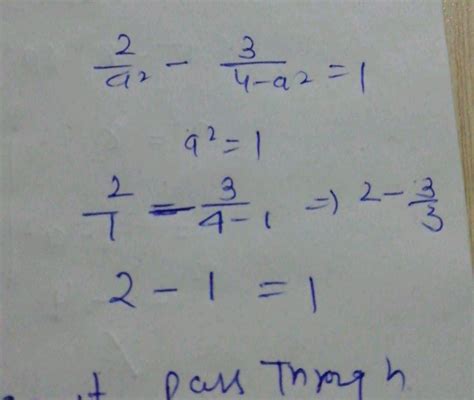 2/a² - 3/4-a² = 1
a² = 1
2/1 - 3/4-1 => 2 - 3/3
2 - 1 = 1
it pass Through